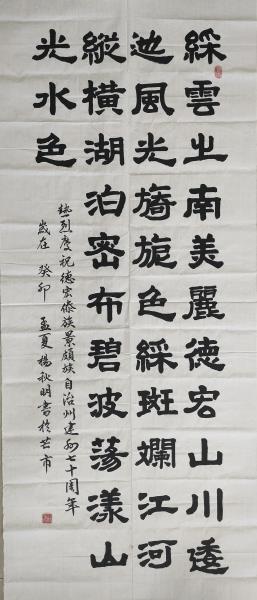 綵雲之南美麗德宏山川逶
迆風光旖旎色綵斑斕江河
縱橫湖泊密布碧波蕩漾山
光水色
熱烈慶祝德宏傣族景頗族自治州建州七十周年
歲在癸卯孟夏楊秋明書於芒市